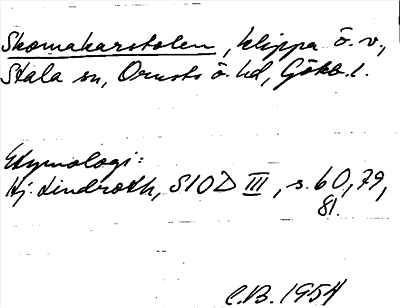 Skomakarstolen, klippa ö. v.,
Stala sn, Orusts ö. hd, Göteb. l.
Etymologi:
Hj. Lindroth, SIOD III, s. 60, 79,
81.
C.B. 1954